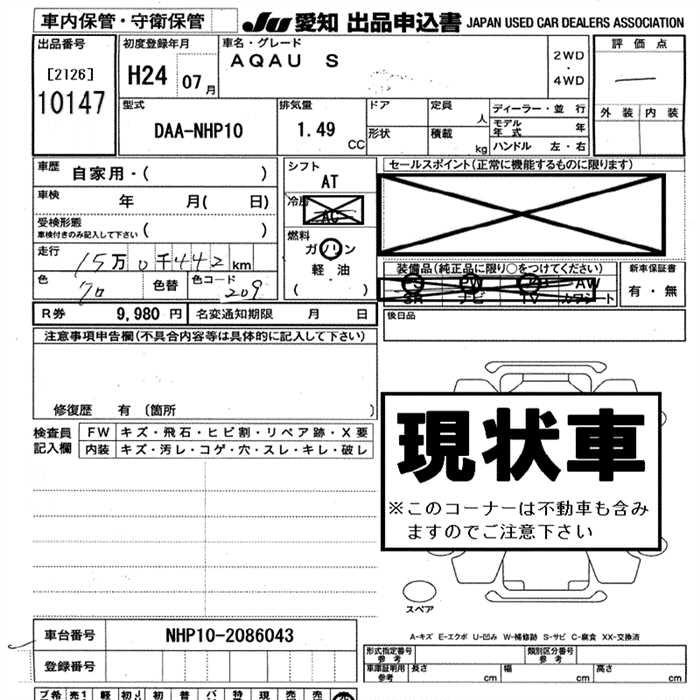 車内保管・守衛保管
JU 愛知 出品申込書 JAPAN USED CAR DEALERS ASSOCIATION
出品番号
[2126]
10147
初度登録年月
H24 07月
車名・グレード
AQAU S
2WD
・
4WD
評価点
外装 内装
型式
DAA-NHP10
排気量
1.49 CC
ドア
形状
定員 人
積載 kg
ディーラー・並行
モデル年式 年
ハンドル 左・右
車歴 自家用・( )
車検 年 月( 日)
受検形態
車検付きのみ記入して下さい ( )
走行 15万0千442km
色 色替 色コード 209
シフト
AT
AC
燃料
ガソリン
軽油
( )
セールスポイント(正常に機能するものに限ります)
装備品(純正品に限り○をつけてください)
PS PW AW
SR ナビ TV カワシート
新車保証書
有・無
R券 9,980円 名変通知期限 月 日
後日品
注意事項申告欄(不具合内容等は具体的に記入して下さい)
修復歴 有 〔箇所 〕
検査員記入欄
FW キズ・飛石・ヒビ割・リペア跡・X要
内装 キズ・汚レ・コゲ・穴・スレ・キレ・破レ
現状車
※このコーナーは不動車も含み
ますのでご注意下さい
スペア
A-キズ E-エクボ U-凹み W-補修跡 S-サビ C-腐食 XX-交換済
車台番号 NHP10-2086043
登録番号
形式指定番号 参考
類別区分番号 参考
車庫証明用 参考 長さ cm 幅 cm 高さ cm